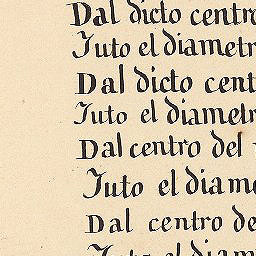 Dal dicto centro
Iuto el diametr
Dal dicto cent
Iuto el diametr
Dal centro del
Iuto el diam
Dal centro de
Iuto el diam